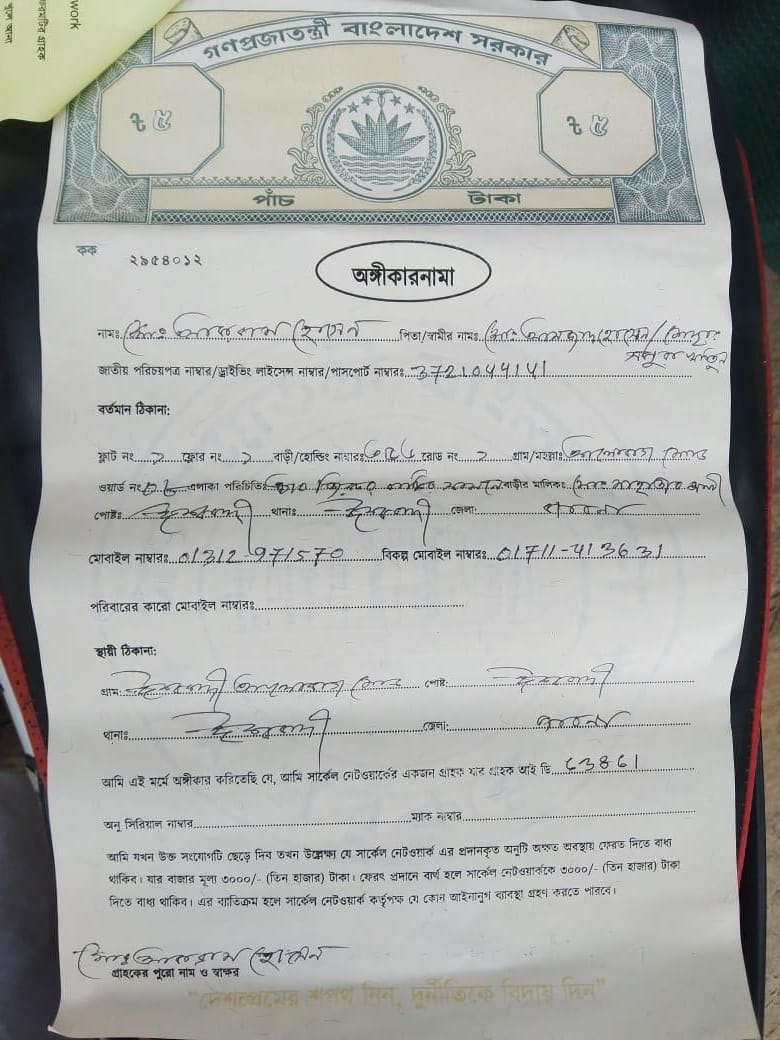 work
গণপ্রজাতন্ত্রী বাংলাদেশ সরকার
৳ ৫ ৳ ৫
পাঁচ টাকা
কক ২৯৫৪০১২
অঙ্গীকারনামা
নামঃ হোসেন পিতা/স্বামীর নামঃ
জাতীয় পরিচয়পত্র নাম্বার/ড্রাইভিং লাইসেন্স নাম্বার/পাসপোর্ট নাম্বারঃ 3721044141
বর্তমান ঠিকানা:
ফ্লাট নং ২ ফ্লোর নং ২ বাড়ী/হোল্ডিং নাম্বারঃ রোড নং ২ গ্রাম/মহল্লাঃ রোড
ওয়ার্ড নং এলাকা পরিচিতিঃ বাড়ীর মালিকঃ
পোষ্টঃ ঈশ্বরদী থানাঃ ঈশ্বরদী জেলা: পাবনা
মোবাইল নাম্বারঃ 01312-971570 বিকল্প মোবাইল নাম্বারঃ 01711-413631
পরিবারের কারো মোবাইল নাম্বারঃ
স্থায়ী ঠিকানা:
গ্রাম: ঈশ্বরদী রোড পোষ্ট: ঈশ্বরদী
থানাঃ ঈশ্বরদী জেলা: পাবনা
আমি এই মর্মে অঙ্গীকার করিতেছি যে, আমি সার্কেল নেটওয়ার্কের একজন গ্রাহক যার গ্রাহক আই ডি
অনু সিরিয়াল নাম্বার ম্যাক নাম্বার
আমি যখন উক্ত সংযোগটি ছেড়ে দিব তখন উল্লেক্ষ্য যে সার্কেল নেটওয়ার্ক এর প্রদানকৃত অনুটি অক্ষত অবস্থায় ফেরত দিতে বাধ্য
থাকিব। যার বাজার মূল্য ৩০০০/- (তিন হাজার) টাকা। ফেরৎ প্রদানে ব্যর্থ হলে সার্কেল নেটওয়ার্ককে ৩০০০/- (তিন হাজার) টাকা
দিতে বাধ্য থাকিব। এর ব্যতিক্রম হলে সার্কেল নেটওয়ার্ক কর্তৃপক্ষ যে কোন আইনানুগ ব্যবস্থা গ্রহণ করতে পারবে।
হোসেন
গ্রাহকের পুরো নাম ও স্বাক্ষর
"দেশপ্রেমের শপথ নিন, দুর্নীতিকে বিদায় দিন"